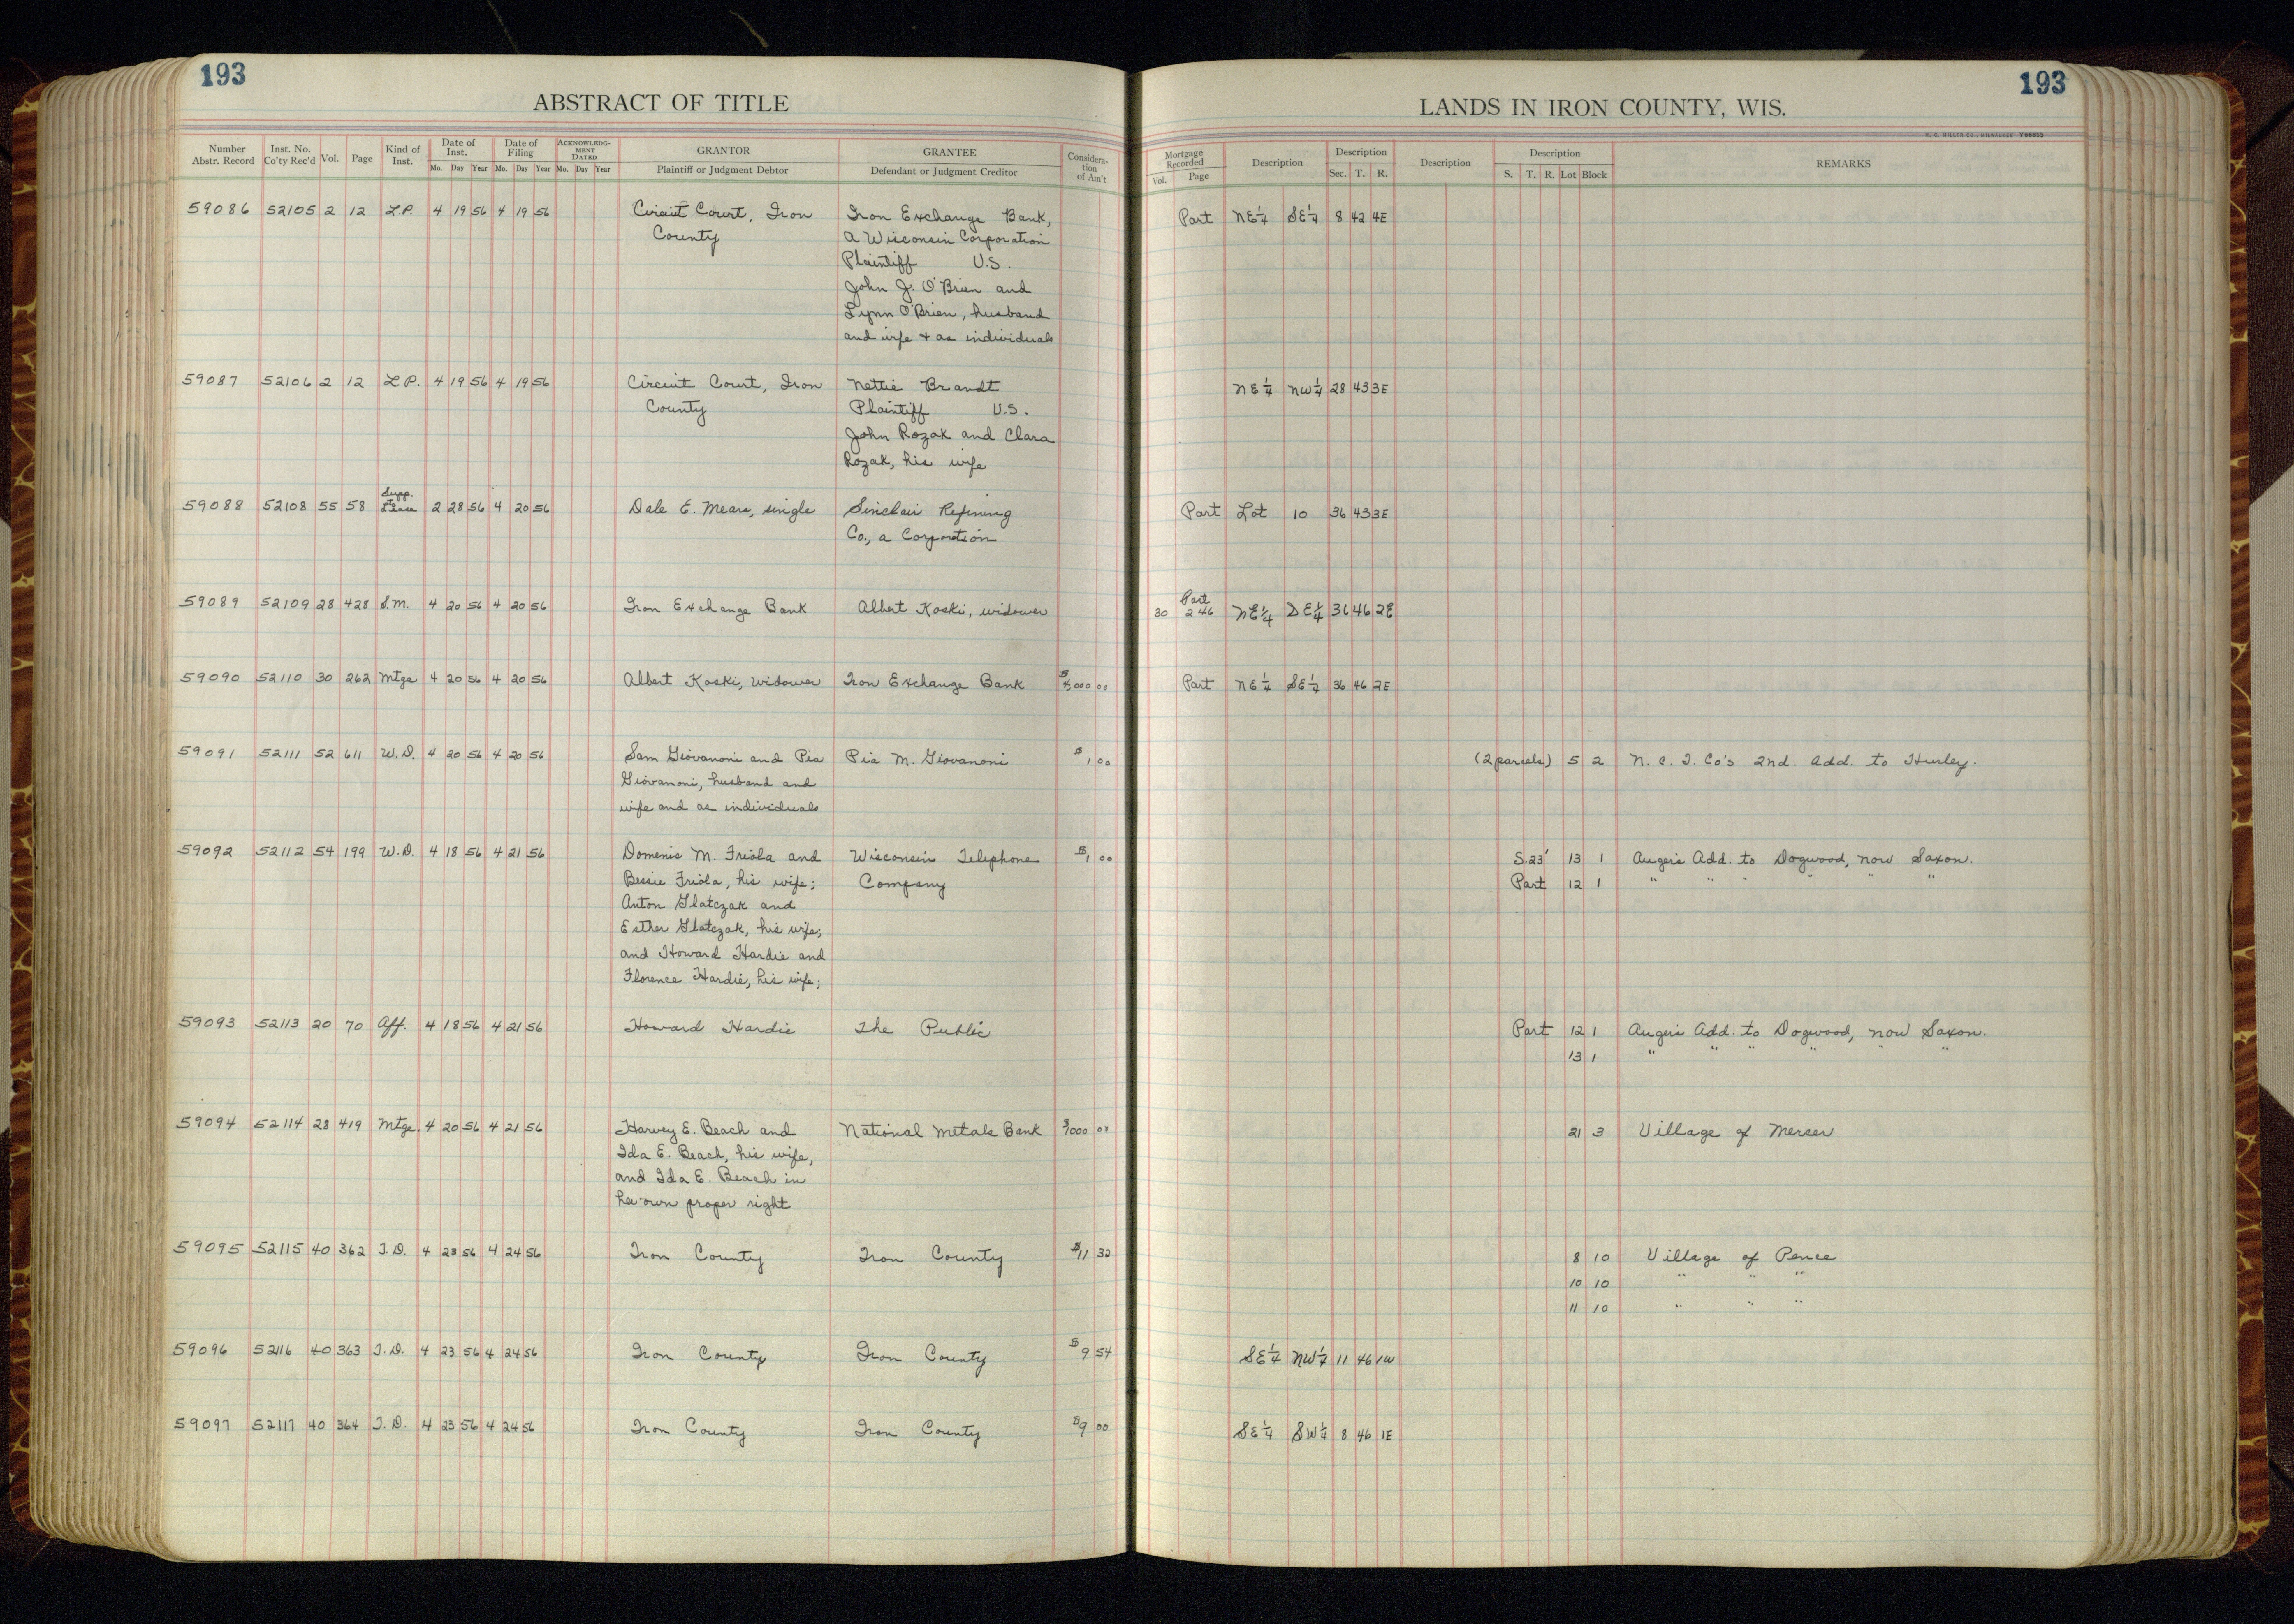 193
ABSTRACT OF TITLE
Number Abstr. Record Inst. No. Co'ty Rec'd Vol. Page Kind of Inst. Date of Inst. Mo. Day Year Date of Filing Mo. Day Year ACKNOWLEDGMENT DATED Mo. Day Year GRANTOR Plaintiff or Judgment Debtor GRANTEE Defendant or Judgment Creditor Consideration of Am't
193
LANDS IN IRON COUNTY, WIS.
H. C. MILLER CO., MILWAUKEE
Mortgage Recorded Vol. Page Description Description Sec. T. R. Description Description S. T. R. Lot Block REMARKS
59086 52105 2 12 L.P. 4 19 56 4 19 56 Circuit Court, Iron Iron Exchange Bank, Part NE¼ SE¼ 8 42 4E
County a Wisconsin Corporation
Plaintiff V.S.
John J. O'Brien and
Lynn O'Brien, husband
and wife + as individuals
59087 52106 2 12 L.P. 4 19 56 4 19 56 Circuit Court, Iron Nettie Brandt NE¼ NW¼ 28 43 3E
County Plaintiff V.S.
John Rozak and Clara
Rozak, his wife
Supp.
59088 52108 55 58 to Lease 2 28 56 4 20 56 Dale E. Mears, single Sinclair Refining Part Lot 10 36 43 3E
Co., a Corporation
Part
59089 52109 28 428 S.M. 4 20 56 4 20 56 Iron Exchange Bank Albert Koski, widower 30 246 NE¼ SE¼ 36 46 2E
59090 52110 30 262 Mtge 4 20 56 4 20 56 Albert Koski, widower Iron Exchange Bank $4,000 00 Part NE¼ SE¼ 36 46 2E
59091 52111 52 611 W.D. 4 20 56 4 20 56 Sam Giovanoni and Pia Pia M. Giovanoni $1 00 (2 parcels) 5 2 N. C. I. Co's 2nd. Add. to Hurley.
Giovanoni, husband and
wife and as individuals
59092 52112 54 199 W.D. 4 18 56 4 21 56 Domenic M. Friola and Wisconsin Telephone $1 00 S.23' 13 1 Auger's Add. to Dogwood, now Saxon.
Bessie Friola, his wife; Company Part 12 1 " " " " " "
Anton Glatczak and
Esther Glatczak, his wife;
and Howard Hardie and
Florence Hardie, his wife;
59093 52113 20 70 Aff. 4 18 56 4 21 56 Howard Hardie The Public Part 12 1 Auger's Add. to Dogwood, now Saxon.
13 1 " " " " " "
59094 52114 28 419 Mtge. 4 20 56 4 21 56 Harvey E. Beach and National Metals Bank 21 3 Village of Mercer
Ida E. Beach, his wife,
and Ida E. Beach in
her own proper right
59095 52115 40 362 T.D. 4 23 56 4 24 56 Iron County Iron County $11 32 8 10 Village of Pence
10 10 " " "
11 10 " " "
59096 52116 40 363 T.D. 4 23 56 4 24 56 Iron County Iron County $9 54 SE¼ NW¼ 11 46 1W
59097 52117 40 364 T.D. 4 23 56 4 24 56 Iron County Iron County $9 00 SE¼ SW¼ 8 46 1E